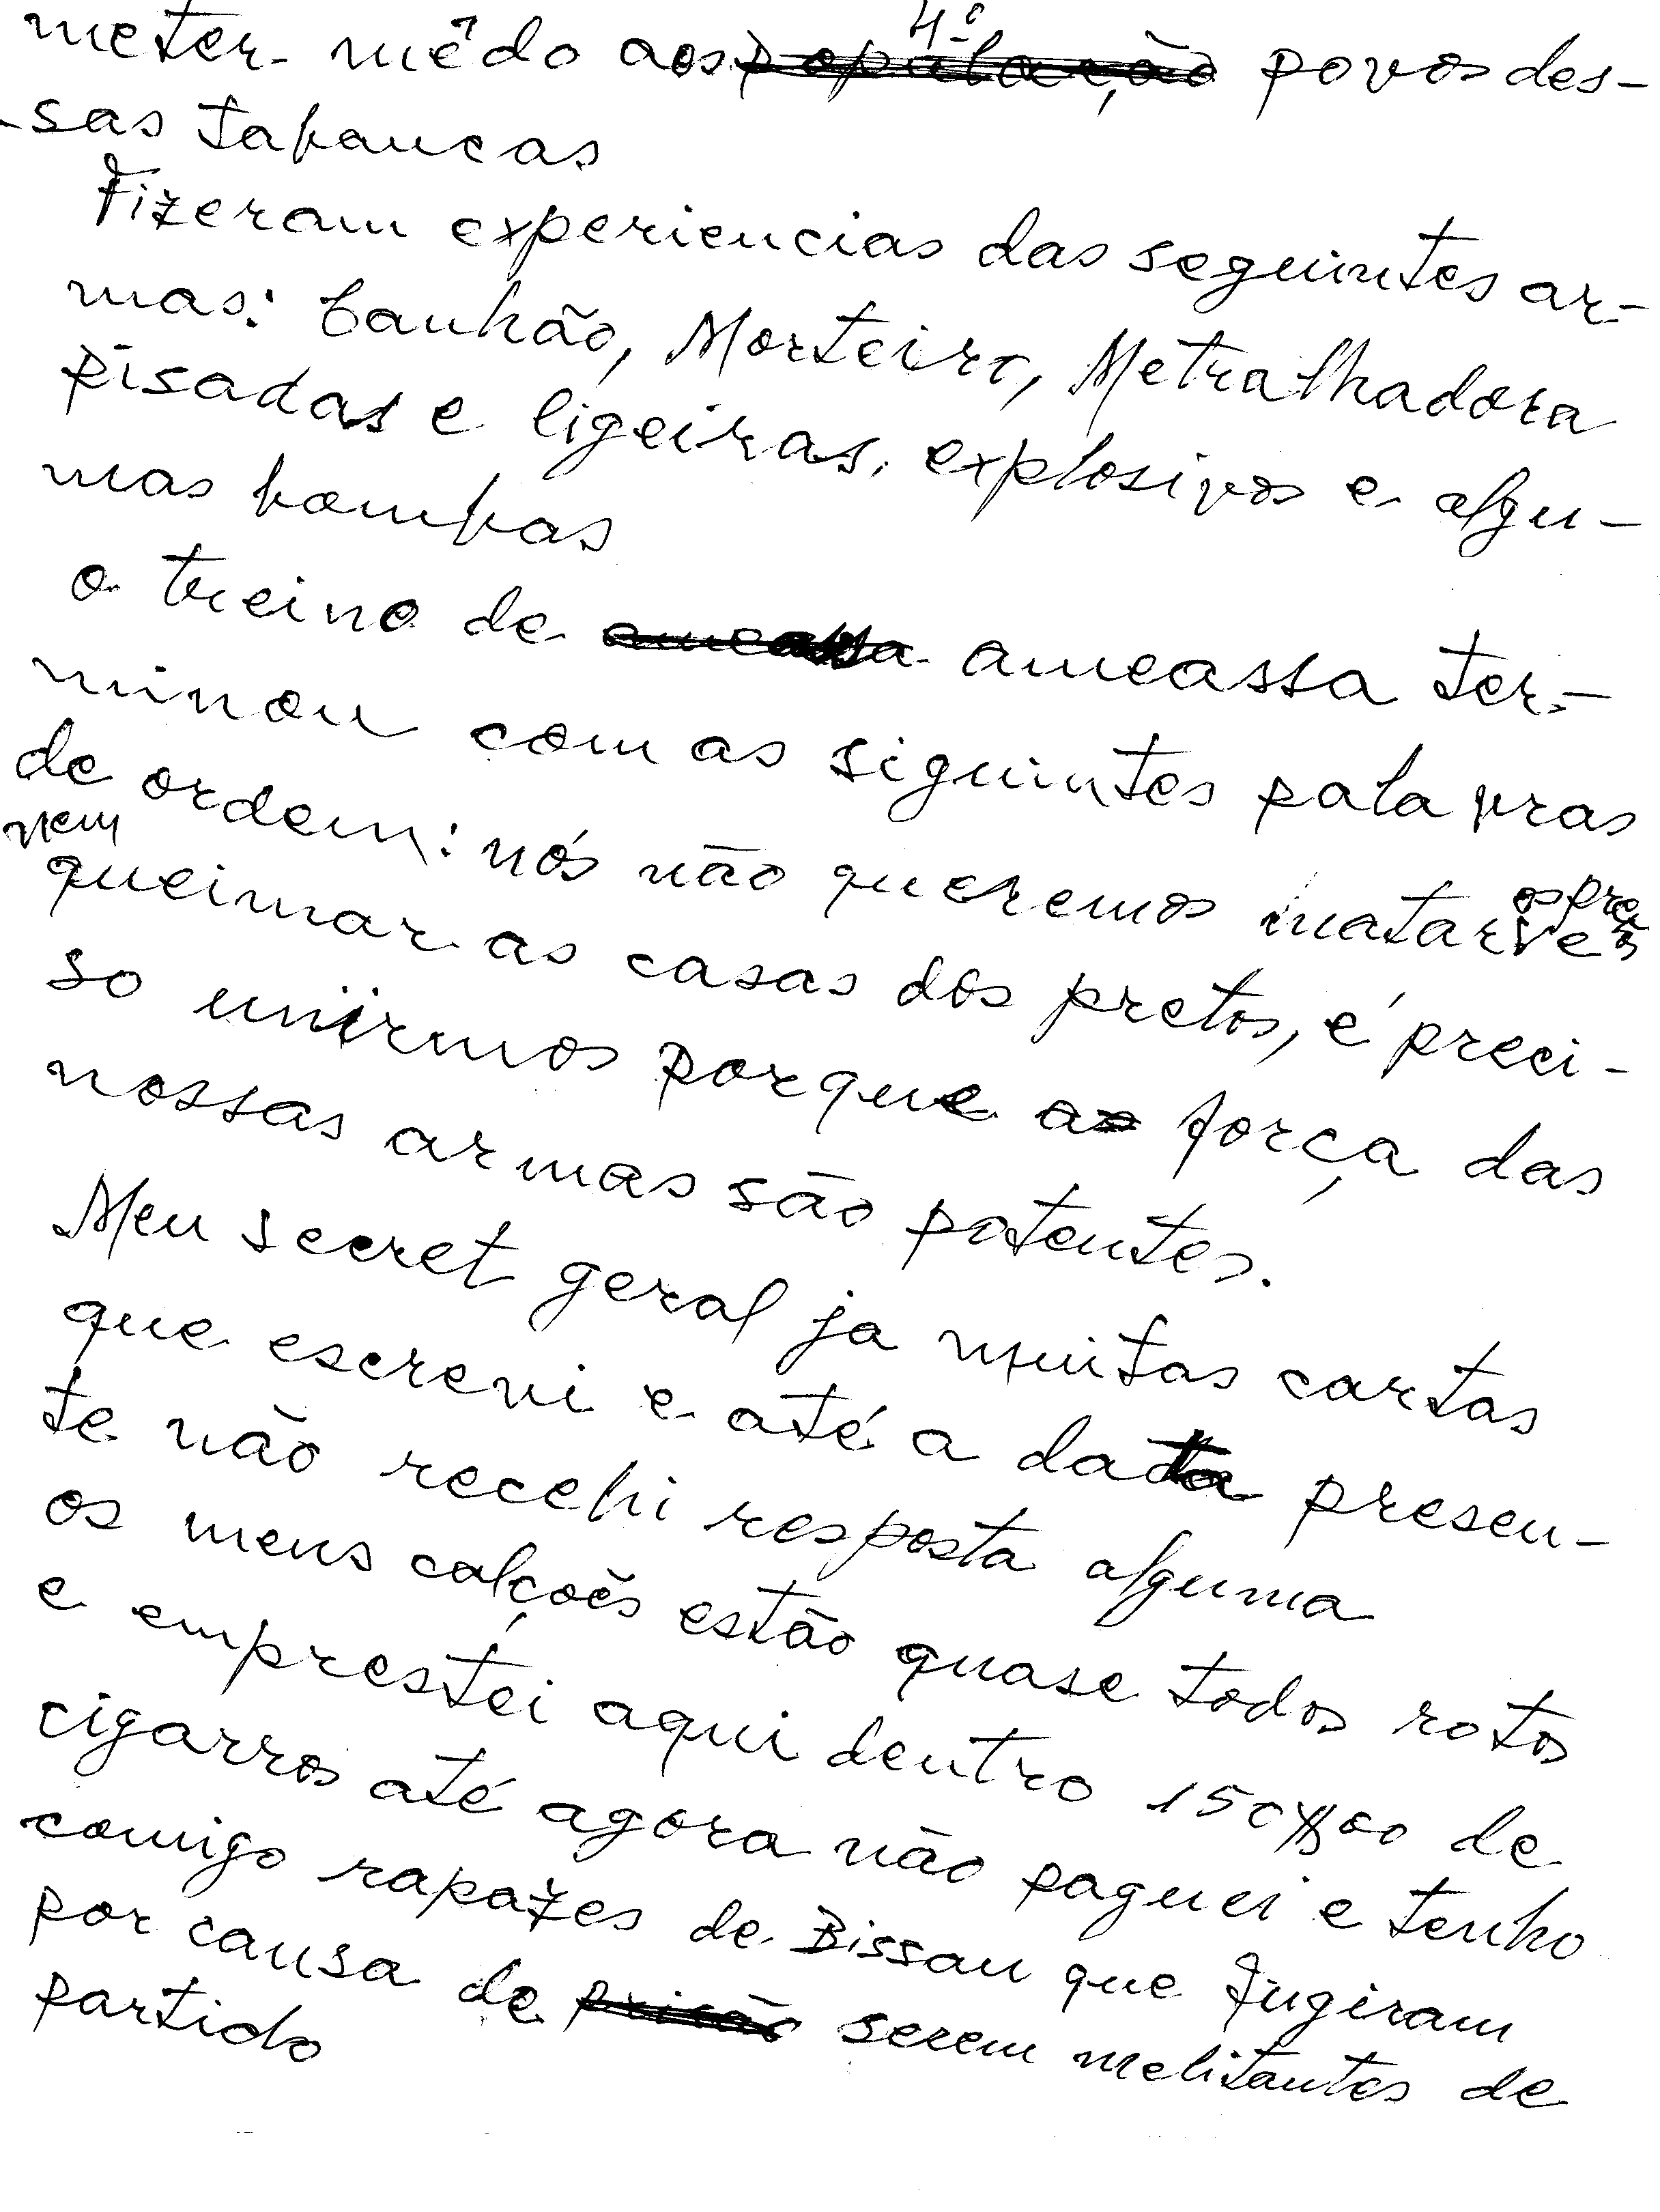 4º
meter mêdo aos população povos des-
-sas tabancas
Fizeram experiencias das seguintes ar-
mas: Canhão, Morteiro, Metralhadora
pisadas e ligeiras, explosivos e algu-
mas bombas
o treino de ameassa ameassa ter-
minou com as siguintes palavras
de ordem: nós não queremos matar os pre
nem queimar as casas dos pretos, é preci-
so uniirmos porque a força das
nossas armas são potentes.
Meu secret geral ja muitas cartas
que escrevi e até a data presen-
te não recebi resposta alguma
os meus calções estão quase todos rotos
e emprestei aqui dentro 150$00 de
cigarros até agora não paguei e tenho
comigo rapazes de Bissau que fugiram
por causa de serem melitantes de
partido